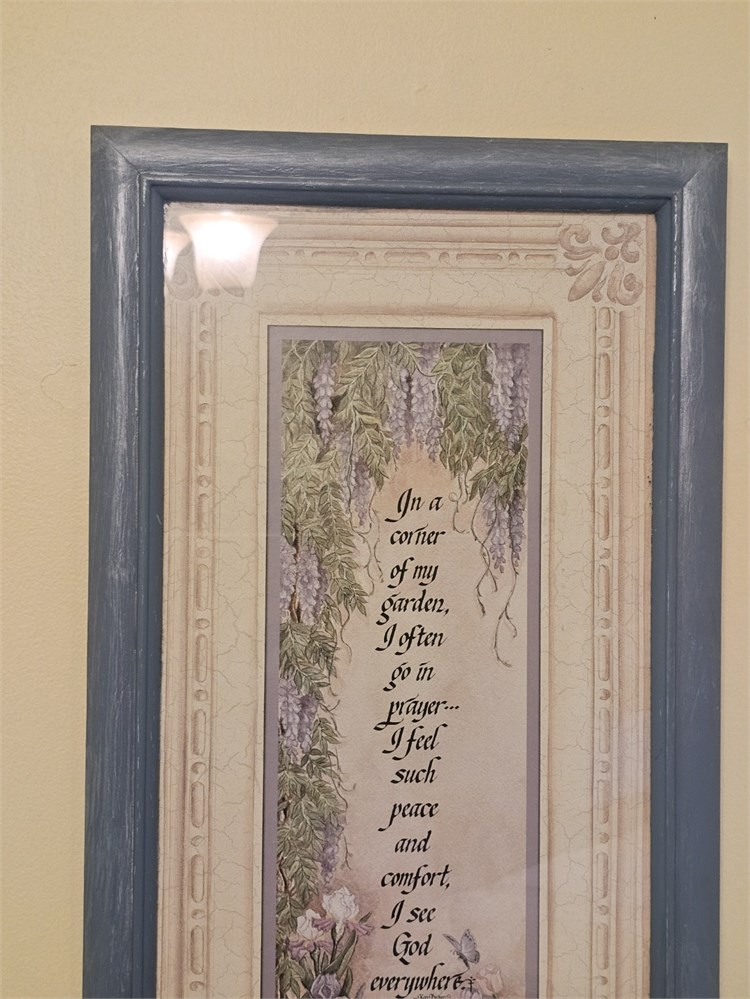 In a
corner
of my
garden,
I often
go in
prayer...
I feel
such
peace
and
comfort,
I see
God
everywhere.